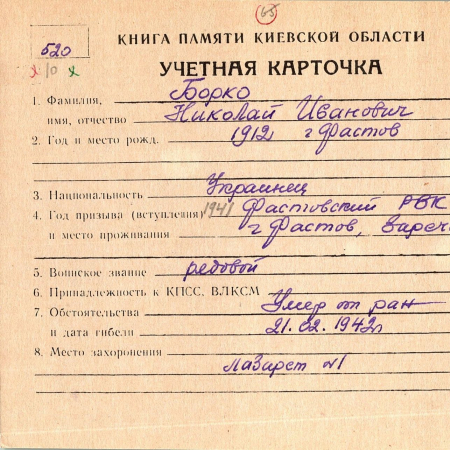 65
520
КНИГА ПАМЯТИ КИЕВСКОЙ ОБЛАСТИ
х 10 х
УЧЕТНАЯ КАРТОЧКА
1. Фамилия, Борко
имя, отчество Николай Иванович
2. Год и место рожд. 1912 г Фастов
3. Национальность Украинец
4. Год призыва (вступления) 1941 Фастовский РВК
и место проживания г Фастов, Вареч
5. Воинское звание редовой
6. Принадлежность к КПСС, ВЛКСМ
7. Обстоятельства Умер от ран
и дата гибели 21.02.1942г
8. Место захоронения
Лазарет №1